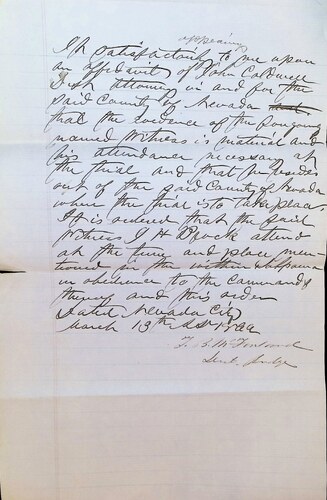 appearing
It satisfactorily to me upon
an affidavit of John Caldwell
Dist attorney in and for the
said County of Nevada
that the evidence of the foregoing
named Witness is material and
his attendance necessary at
the trial and that he resides
out of the said County of Nevada
where the trial is to take place
It is ordered that the said
Witness J H attend
at the time and place men
tioned in the within subpoena
in obedience to the commands
thereof and this order
Dated Nevada City
March 13th AD
Judge